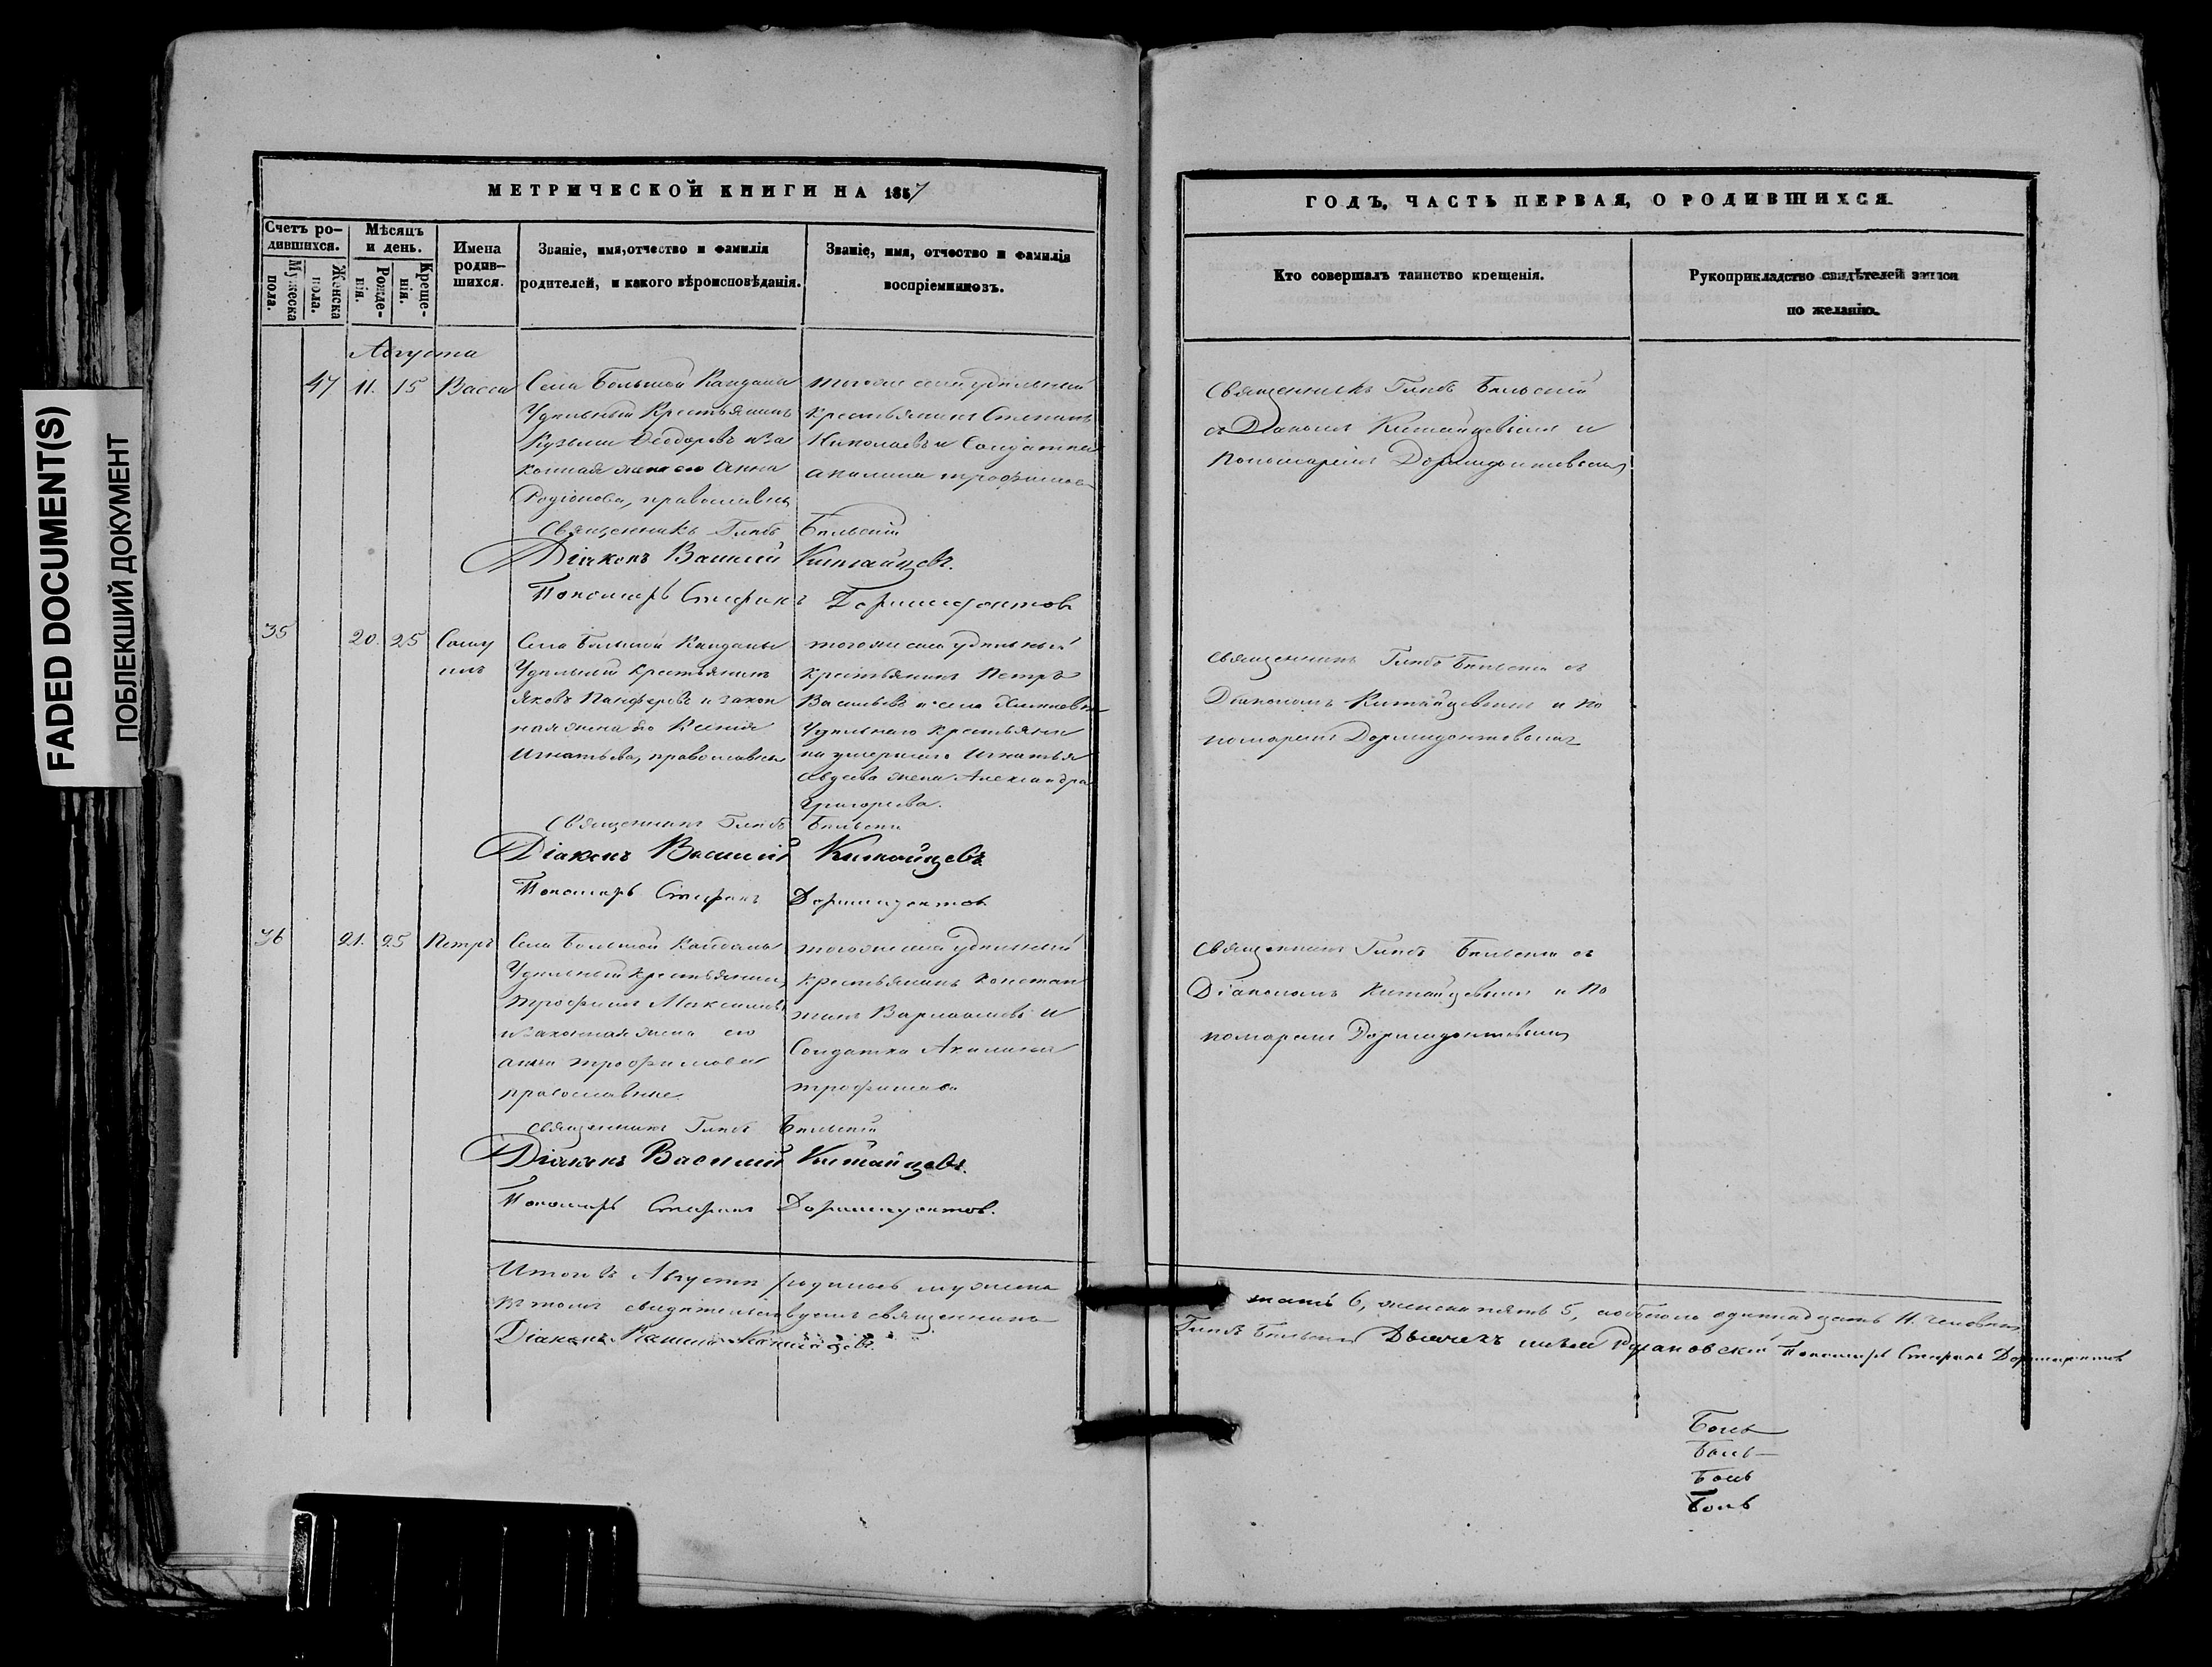 FADED DOCUMENT(S)
ПОБЛЕКШИЙ ДОКУМЕНТ
МЕТРИЧЕСКОЙ КНИГИ НА 1857
Счетъ ро-
дившихся.
Мужеска
пола.
Женска
пола.
Мѣсяцъ
и день.
Рожде-
нія.
Креще-
нія.
Имена
родив-
шихся.
Званіе, имя, отчество и фамилія
родителей, и какого вѣроисповѣданія.
Званіе, имя, отчество и фамилія
воспріемниковъ.
Августа
47 11. 15 Васса
Села Большой Кандалы
Удѣльный Крестьянинъ
Кузьма Ѳеодоровъ и за
конная жена его Анна
Родіонова, православны
тогоже села удѣльный
Крестьянинъ Степанъ
Николаевъ и Солдатка
акилина трофимова
Священникъ Глѣбъ Бѣльскій
Діаконъ Василій Китайцевъ.
Пономарь Стефанъ Дормидонтовъ
35 20. 25 Саму
илъ
Села Большой Кандалы
Удѣльный Крестьянинъ
Яковъ Панферовъ и закон
ная жена его Ксенія
Игнатьева, православны
тогоже села удѣльный
крестьянинъ Петръ
Васильевъ и села
Удѣльнаго крестьяни
на умершаго Игнатья
Авдеева жена Александра
Григорьева.
Священникъ Глѣбъ Бѣльскій
Діаконъ Василій Китайцевъ
Пономарь Стефанъ Дормидонтовъ
36 21. 25 Петръ
Села Большой Кандалы
Удѣльный Крестьянинъ
трофимъ Максимовъ
и законная жена его
анна трофимова
православные.
тогоже села удѣльный
крестьянинъ констан
тинъ Варлаамовъ и
Солдатка Акилина
трофимова
Священникъ Глѣбъ Бѣльскій
Діаконъ Василій Китайцевъ.
Пономарь Стефанъ Дормидонтовъ.
Итого въ Августѣ родилось мужеска
Въ томъ свидѣтельствуемъ священникъ
Діаконъ Василій Китайцевъ.
ГОДЪ, ЧАСТЬ ПЕРВАЯ, О РОДИВШИХСЯ.
Кто совершалъ таинство крещенія.
Рукоприкладство свидѣтелей записи
по желанію.
Священникъ Глѣбъ Бѣльскій
съ Діакономъ Китайцевымъ и
пономаремъ Дормидонтовымъ
Священникъ Глѣбъ Бѣльскій съ
Діакономъ Китайцевымъ и по
номаремъ Дормидонтовымъ
Священникъ Глѣбъ Бѣльскій съ
Діакономъ Китайцевымъ и по
номаремъ Дормидонтовымъ
6, женска пять 5, а обоего одиннадцать 11. человѣкъ
Глѣбъ Бѣльскій Дьячекъ Пономарь Стефанъ Дормидонтовъ